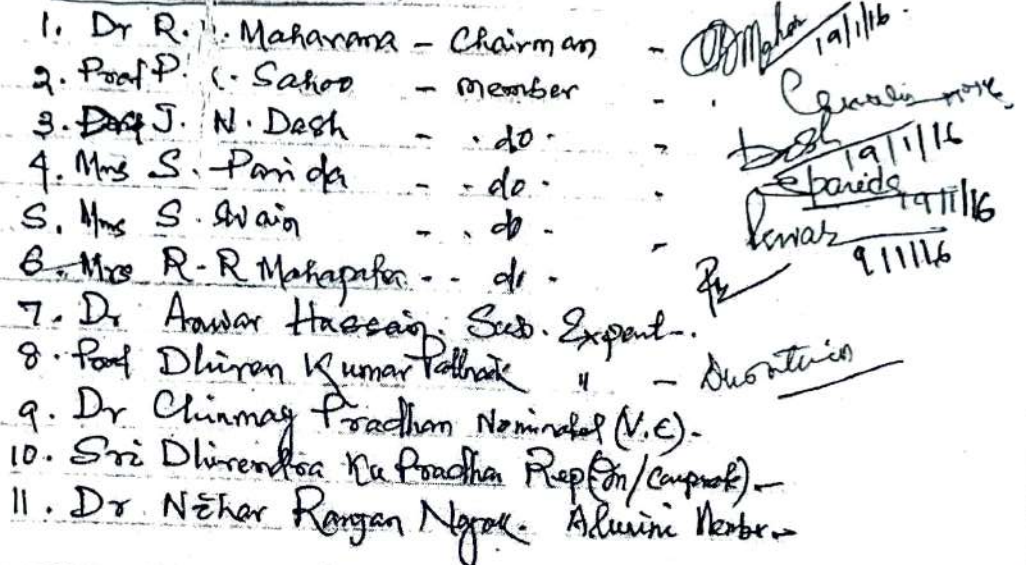 1. Dr R. Maharana - Chairman - 19/1/16
2. Prof P. C. Sahoo - member -
3. J. N. Dash - do - - Dash 19/1/16
4. Mrs S. Parida - - do - - Sparida 19/1/16
5. Mrs S. Swain - - do - - 9/1/16
6. Mrs R. R Mahapatra - - do -
7. Dr Anwar Hassain. Sub. Expert -
8. Prof Dhiren Kumar Pattnaik " -
9. Dr Chinmay Pradhan Nominated (V.C) -
10. Sri Dhirendra Ku Pradhan Rep -
11. Dr Nihar Ranjan Nayak - Alumini Member -